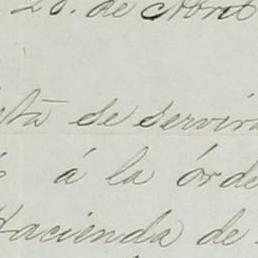 28. de Abril
de servirá
á la órde
Hacienda de